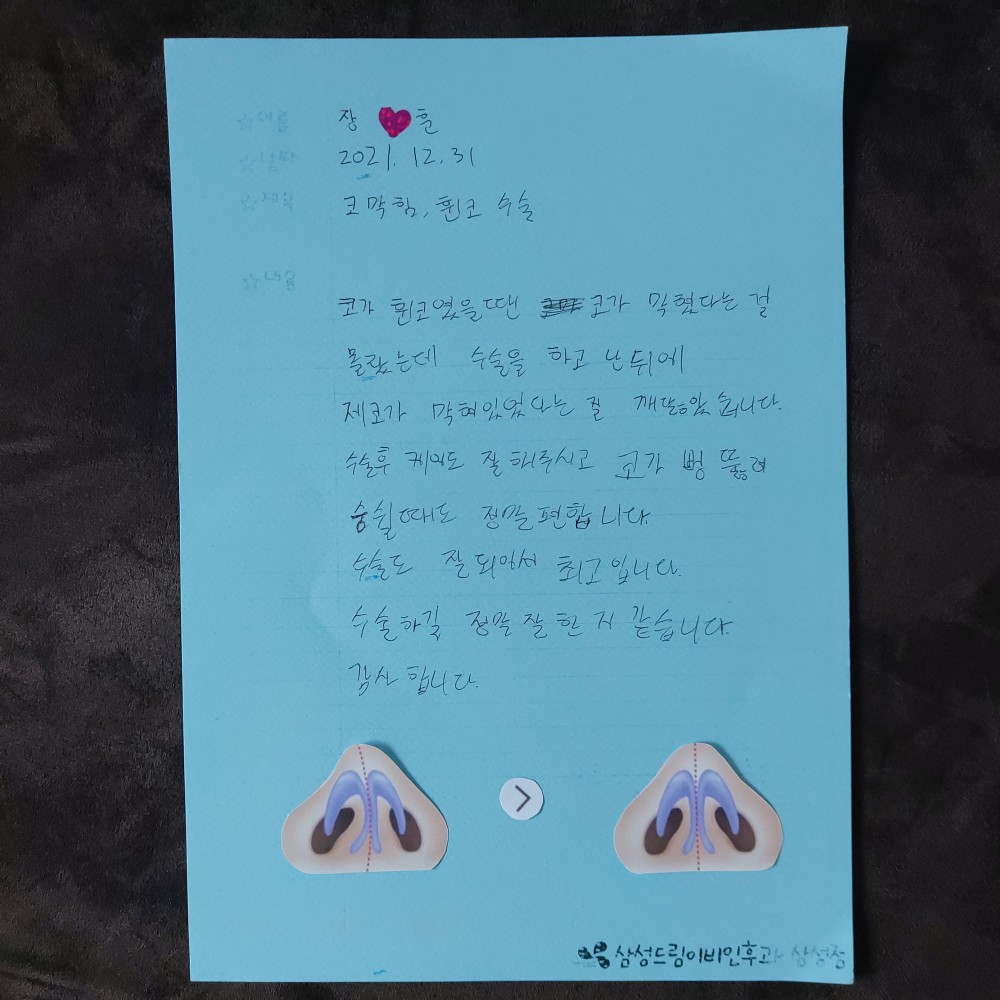 장 훈
2021. 12. 31
코막힘, 휜코 수술
코가 휜코였을땐 코가 막혔다는 걸
몰랐는데 수술을 하고 난 뒤에
제코가 막혀있었다는 걸 깨달았습니다.
수술후 케어도 잘해주시고 코가 뻥 뚫려
숨쉴때도 정말편합니다.
수술도 잘되어서 최고입니다.
수술하길 정말잘한지 같습니다.
감사합니다.
삼성드림이비인후과 삼성점